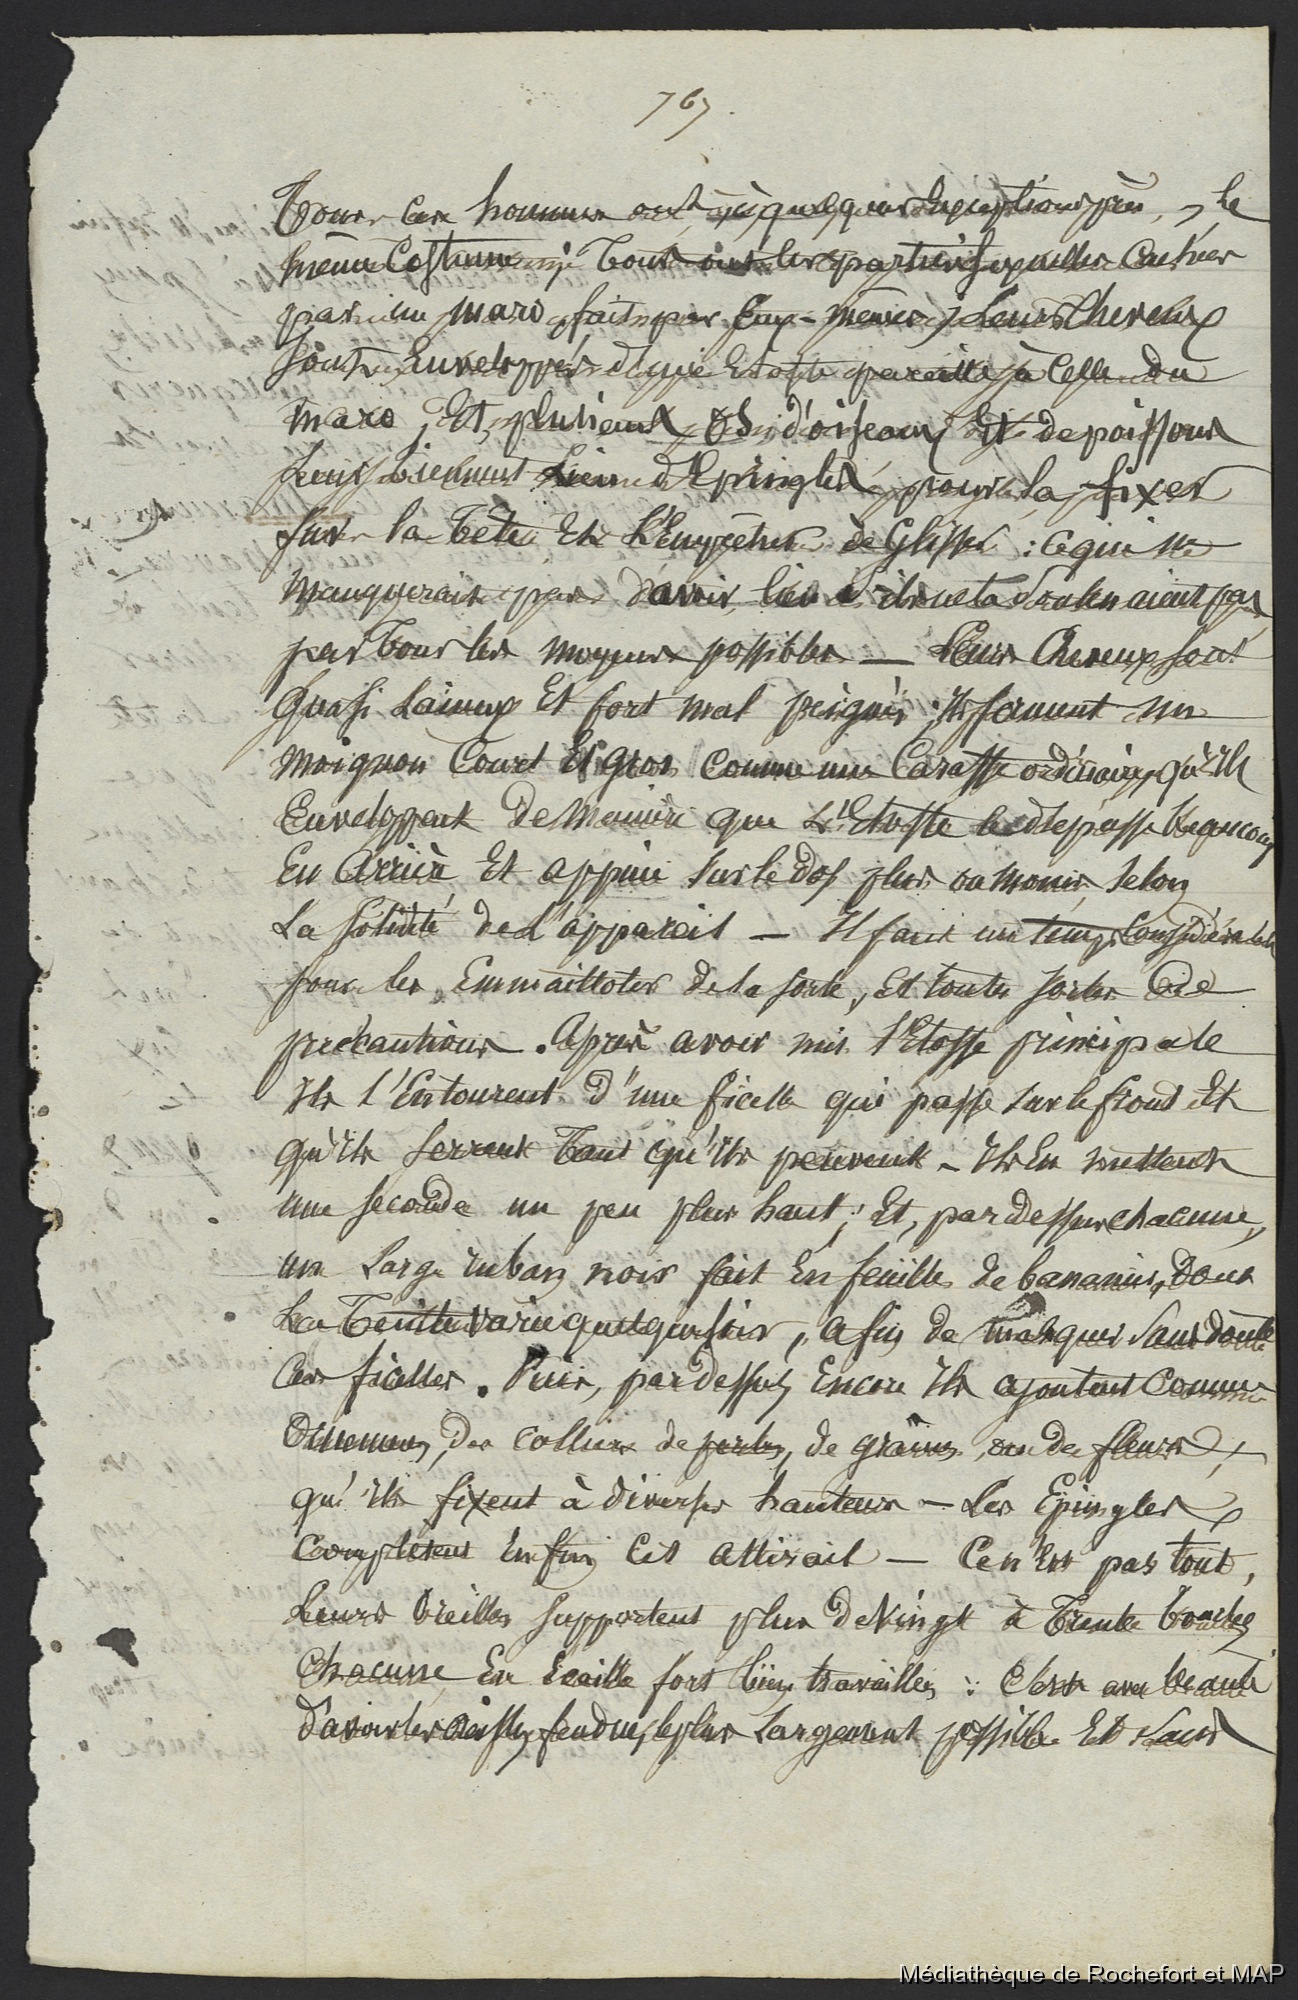 767
Tous ces hommes ont, à quelques exceptions près, le
même Costume; Tous ont les parties sexuelles cachées
par un maro fait par Eux-mêmes; Leurs Cheveux
sont Enveloppés d'une Etoffe pareille à Celle du
maro, Et plusieurs os d'oiseaux Et de poissons
leur tiennent lieu d'Epingles, pour la fixer
sur la Tête Et L'Empêcher de Glisser : ce qui ne
manquerait pas d'avoir lieu s'ils ne la
par Tous les moyens possibles — Leurs Cheveux sont
quasi Laineux Et fort mal peignés; ils forment un
moignon Court Et gros comme une Caraffe ordinaire, qu'ils
Enveloppent de manière que L'Etoffe le dépasse beaucoup
En arrière Et appuie sur le dos plus ou moins, selon
La solidité de L'appareil — Il faut un temps Considérable
pour les Emmailloter de la sorte, et toutes sortes de
précautions. Après avoir mis l'Etoffe principale
ils l'Entourent d'une ficelle qui passe sur le front Et
qu'ils serrent Tant qu'ils peuvent - Ils En mettent
une seconde un peu plus haut; Et, par dessus chacune,
un Large ruban noir fait En feuilles de bananier, dont
La Teinte varie quelquefois, afin de masquer sans doute
Ces ficelles. Puis, par dessus Encore ils ajoutent Comme
Ornemens, des colliers de perles, de graines, ou de fleurs,
qu'ils fixent à diverses hauteurs — Les Epingles
Complètent Enfin Cet attirail — Ce n'Est pas tout,
Leurs Oreilles supportent plus de Vingt à Trente boucles
Chacune En Ecaille fort bien travaillés : C'est une beauté
d'avoir les oreilles fendues, le plus Largement possible Et sans
Médiathèque de Rochefort et MAP